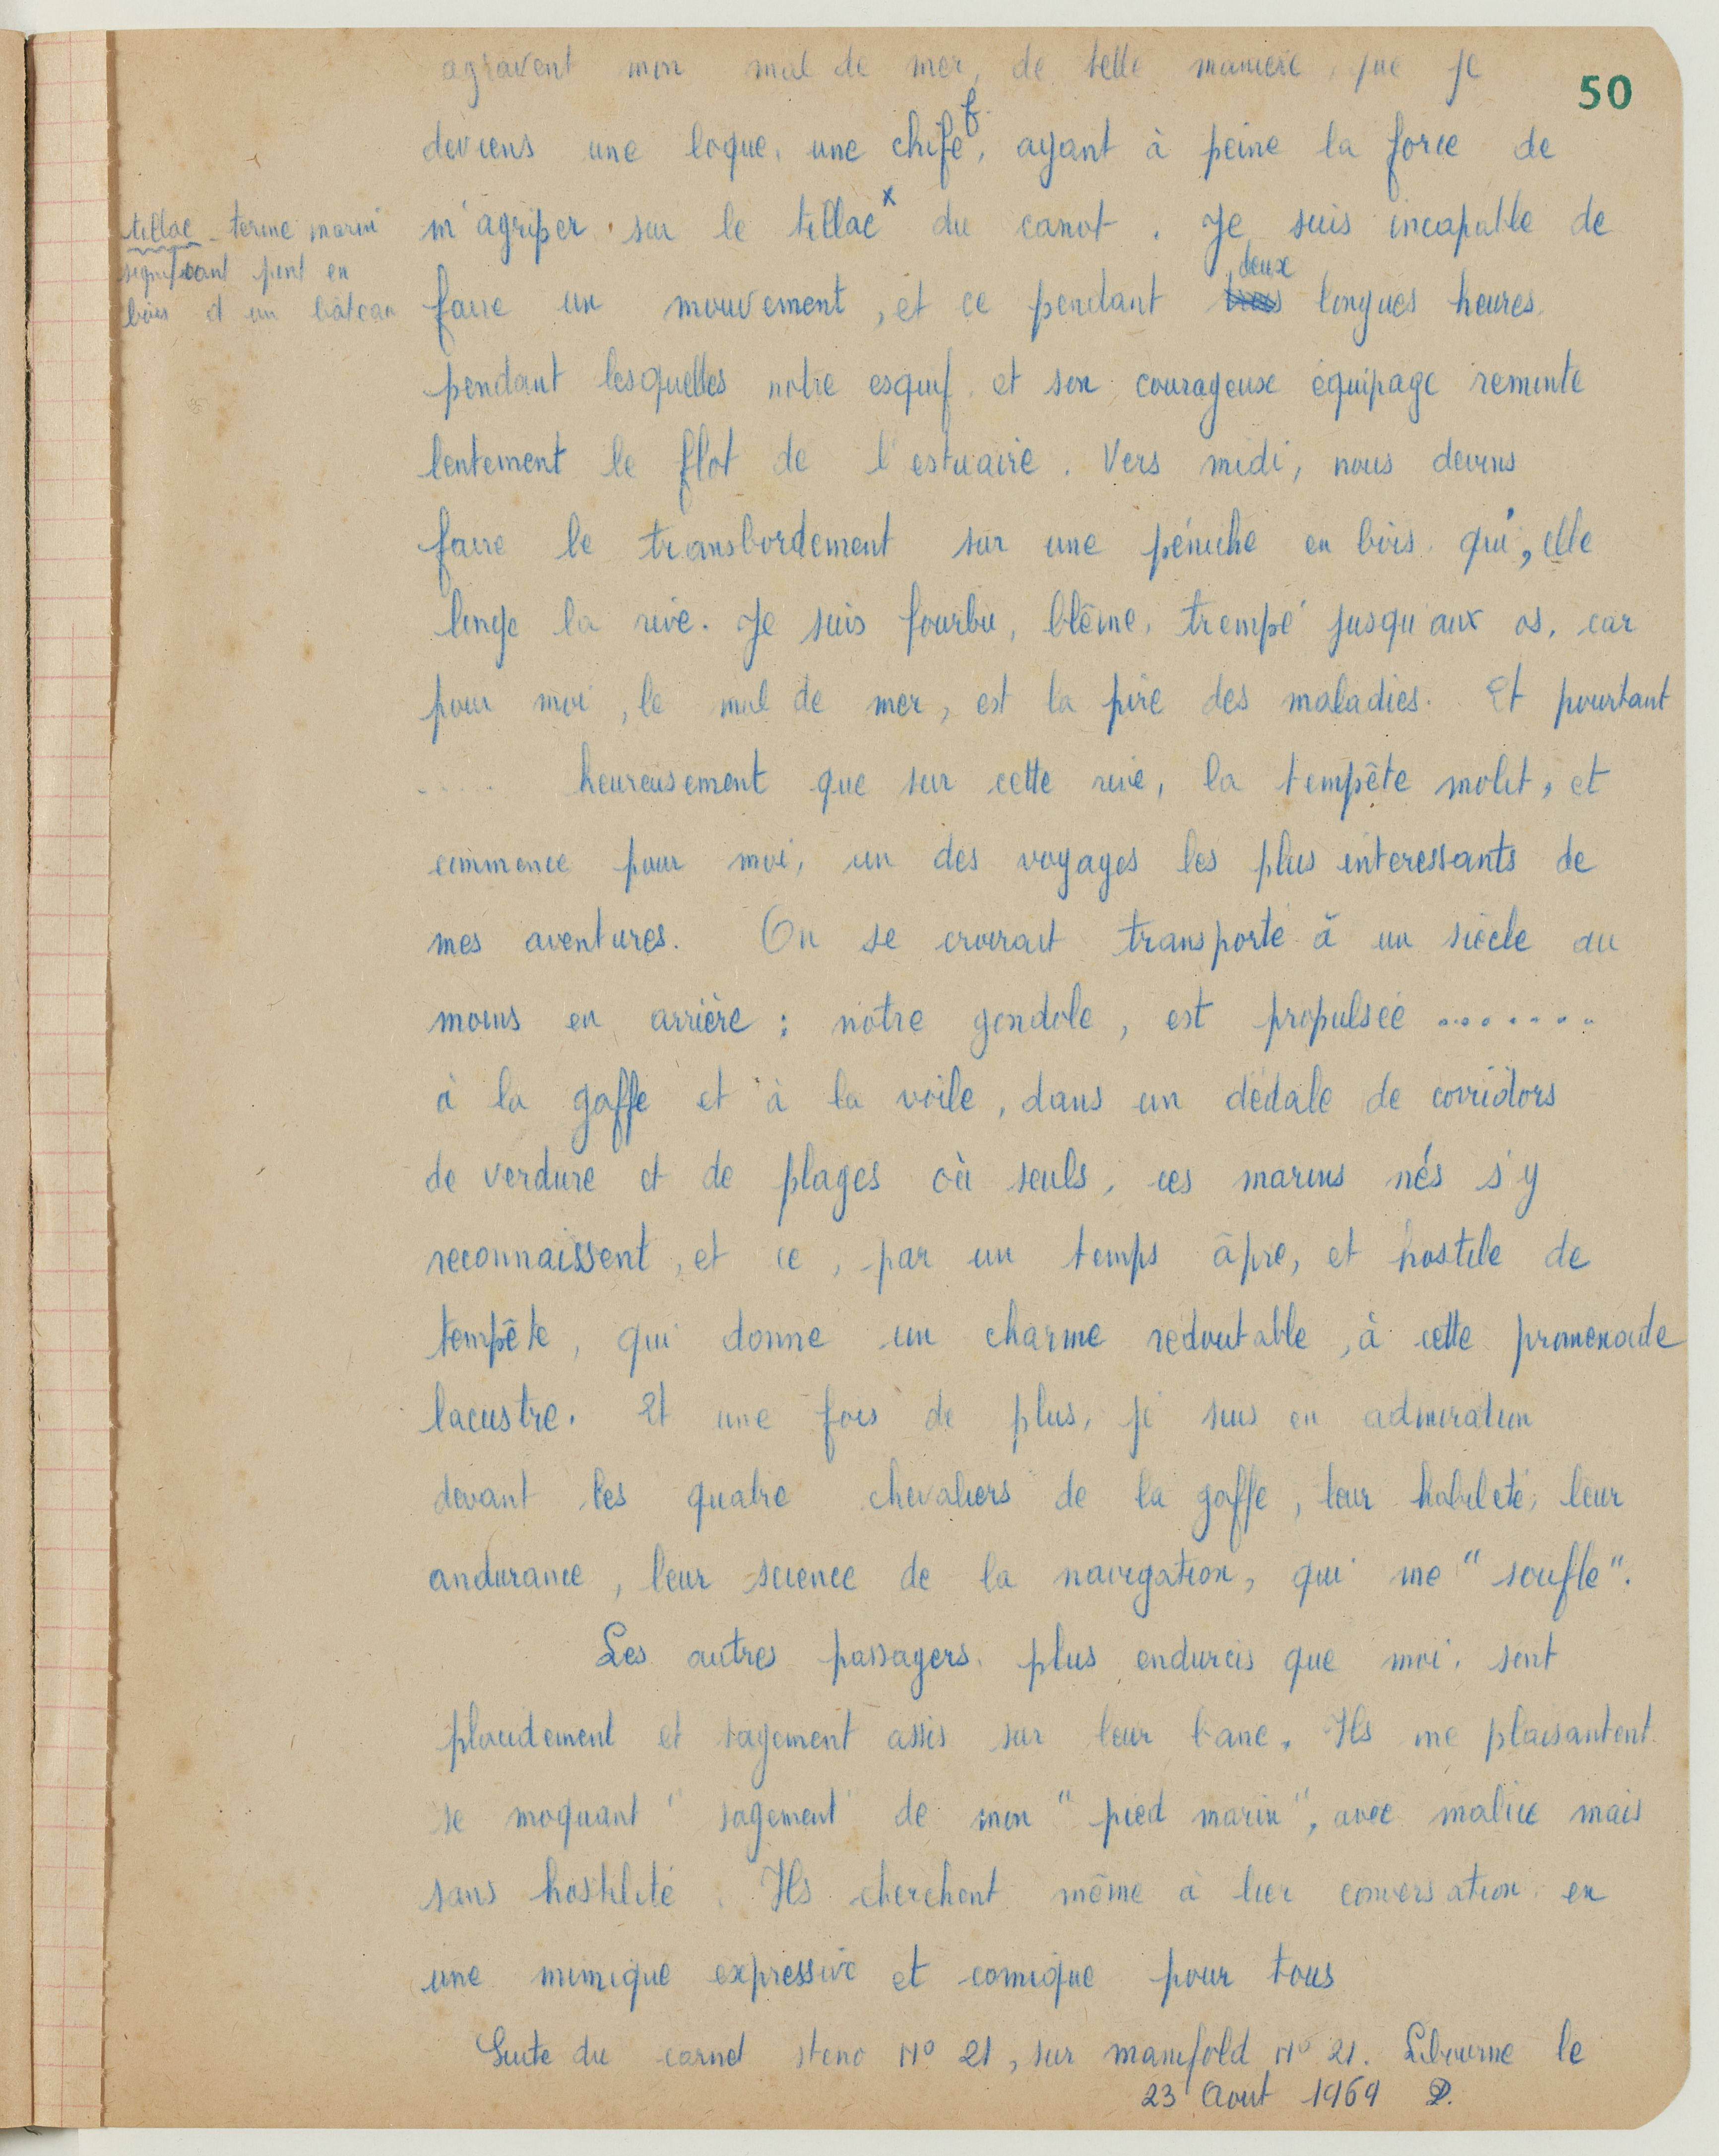 50
agravent mon mal de mer, de telle manière, que je
deviens une loque, une chife f, ayant à peine la force de
m'agriper sur le tillac x du canot. Je suis incapable de
tillac - terme marin
signifiant pont en
bois d'un bâteau
faire un mouvement, et ce pendant trois deux longues heures,
pendant lesquelles notre esquif et son courageux équipage remonte
lentement le flot de l'estuaire. Vers midi, nous devons
faire le transbordement sur une péniche en bois, qui, elle
longe la rive. Je suis fourbu, blême, trempé jusqu'aux os, car
pour moi, le mal de mer, est la pire des maladies. Et pourtant
..... heureusement que sur cette rive, la tempête molit, et
commence pour moi, un des voyages les plus interessants de
mes aventures. On se croirait transporté à un siècle au
moins en arrière : notre gondole, est propulsée ........
à la gaffe et à la voile, dans un dédale de corridors
de verdure et de plages où seuls, ces marins nés s'y
reconnaissent, et ce, par un temps âpre, et hostile de
tempête, qui donne un charme redoutable, à cette promenade
lacustre. Et une fois de plus, je suis en admiration
devant les quatre chevaliers de la gaffe, leur habileté, leur
andurance, leur science de la navigation, qui me "soufle".
Les autres passagers, plus endurcis que moi, sont
placidement et sagement assis sur leur banc. Ils me plaisantent
se moquant "sagement" de mon "pied marin", avec malice mais
sans hostilité. Ils cherchent même à lier conversation en
une mimique expressive et comique pour tous
Suite du carnet steno N° 21, sur manifold N° 21. Libourne le
23 Aout 1969 D.